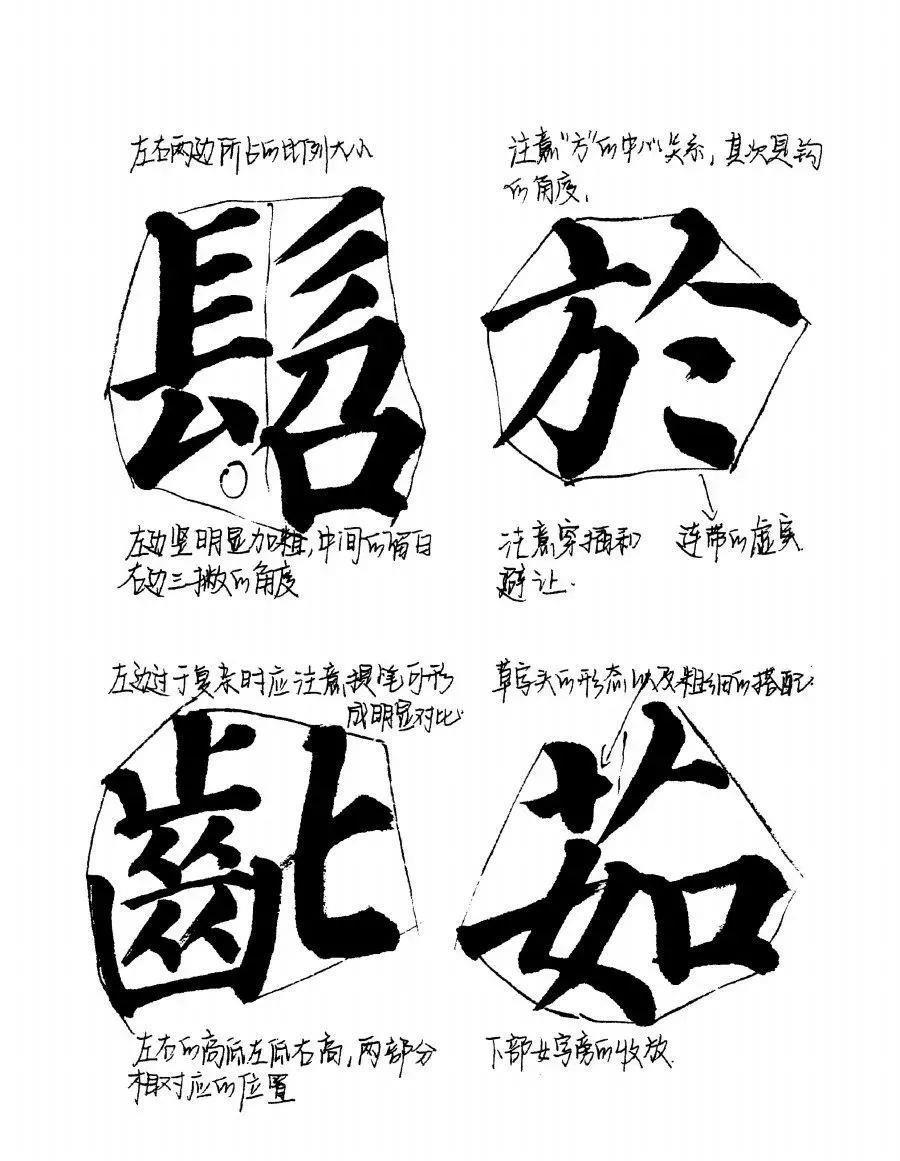 左右两边所占的比列大小
髫
左边竖明显加粗,中间的留白
右边三撇的角度
注意“方”的中心关系,其次是钩
的角度,
於
注意穿插和
避让.
连带的虚实
左边过于复杂时应注意,提笔可形
成明显对比
齔
左右的高低左低右高,两部分
相对应的位置
草字头的形态以及粗细的搭配
茹
下部女字旁的收放